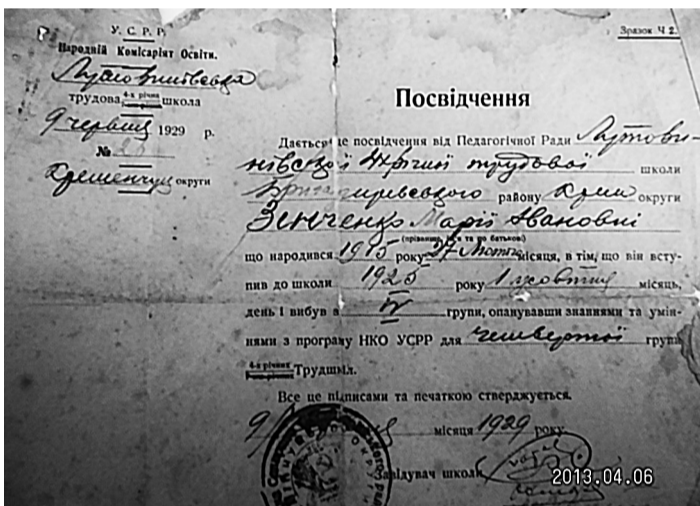 У. С. Р. Р.
Народній Комісаріят Освіти.
трудова 4-х річна школа
9 червня 1929 р.
№
округи
Зразок Ч 2.
Посвідчення
Дається це посвідчення від Педагогічної Ради Лутови-
нівської 4х річної трудової школи
району Крем округи
Зенченко Марії Івановні
(прізвище, ім'я та по батькові)
що народився 1915 року 27 Лютого місяця, в тім, що він всту-
пив до школи 1925 року 1 жовтня місяць,
день і вибув з IV групи, опанувавши знаннями та умін-
нями з програму НКО УСРР для четвертої групи
4-х річних Трудшкіл.
Все це підписами та печаткою стверджується.
9 місяця 1929 року
Завідувач школи
2013.04.06